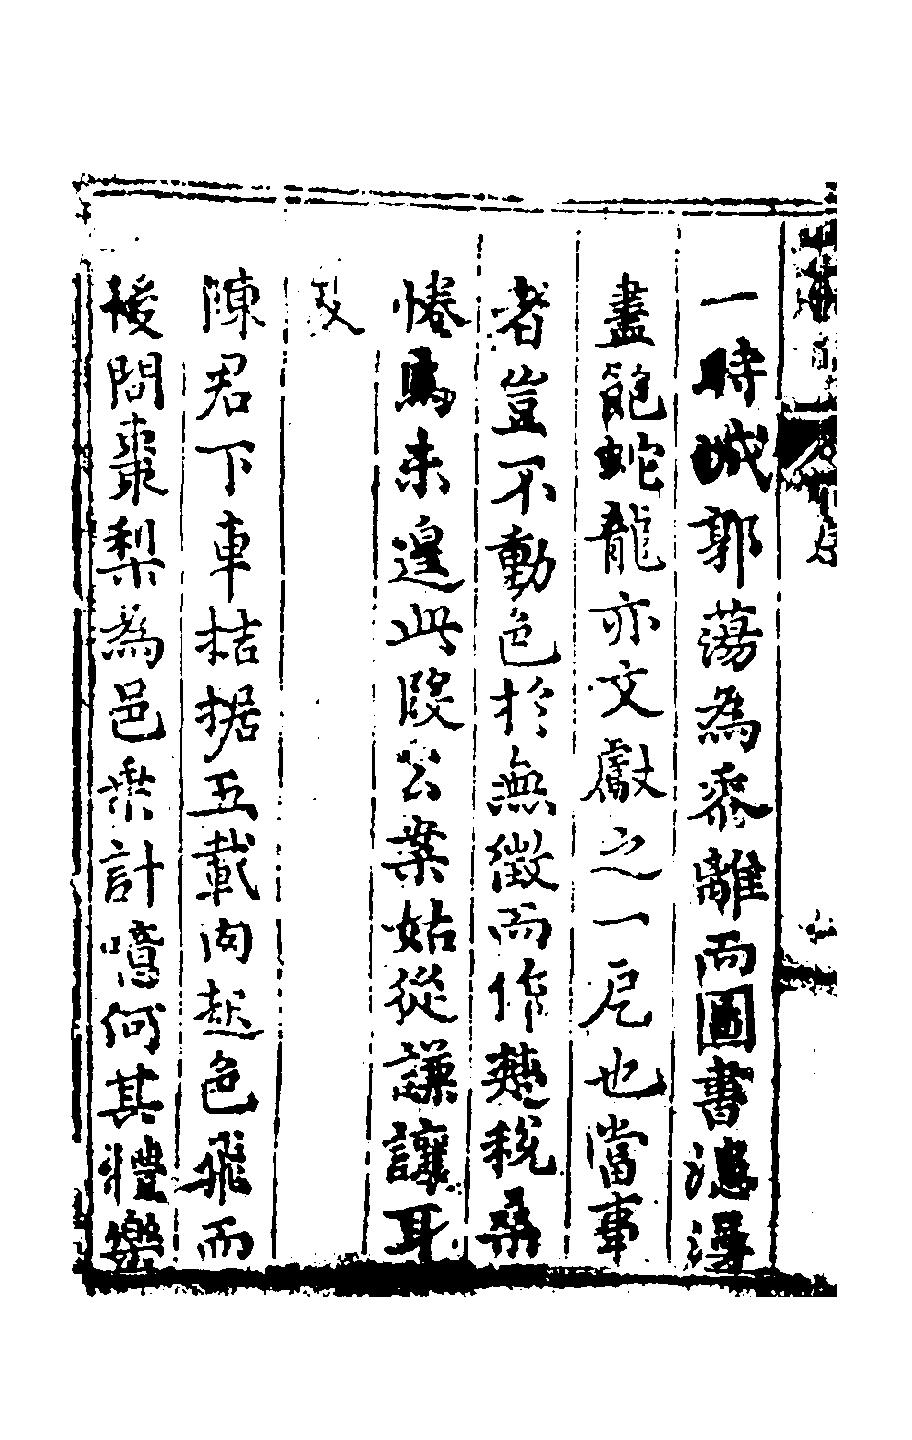 一時城郭蕩為黍離而圖書漶漫
盡飽蛇龍亦文獻之一厄也當事
者豈不動色於無徵而作楚稅桑
惓焉未遑此段公案姑從謙讓耳
陳君下車拮据五載肉起色飛而
後問棗梨為邑乘計噫何其禮樂